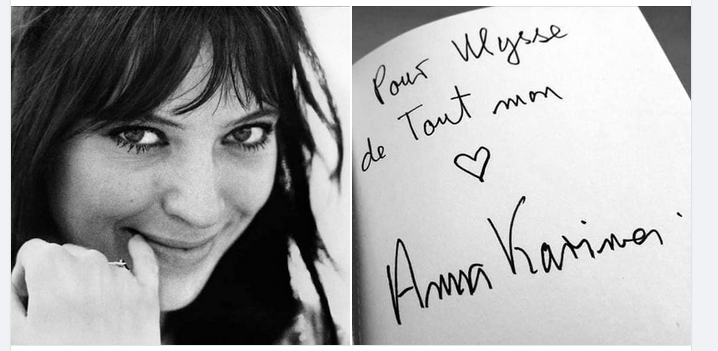 Pour Ulysse
de Tout mon
♡
Anna Karina